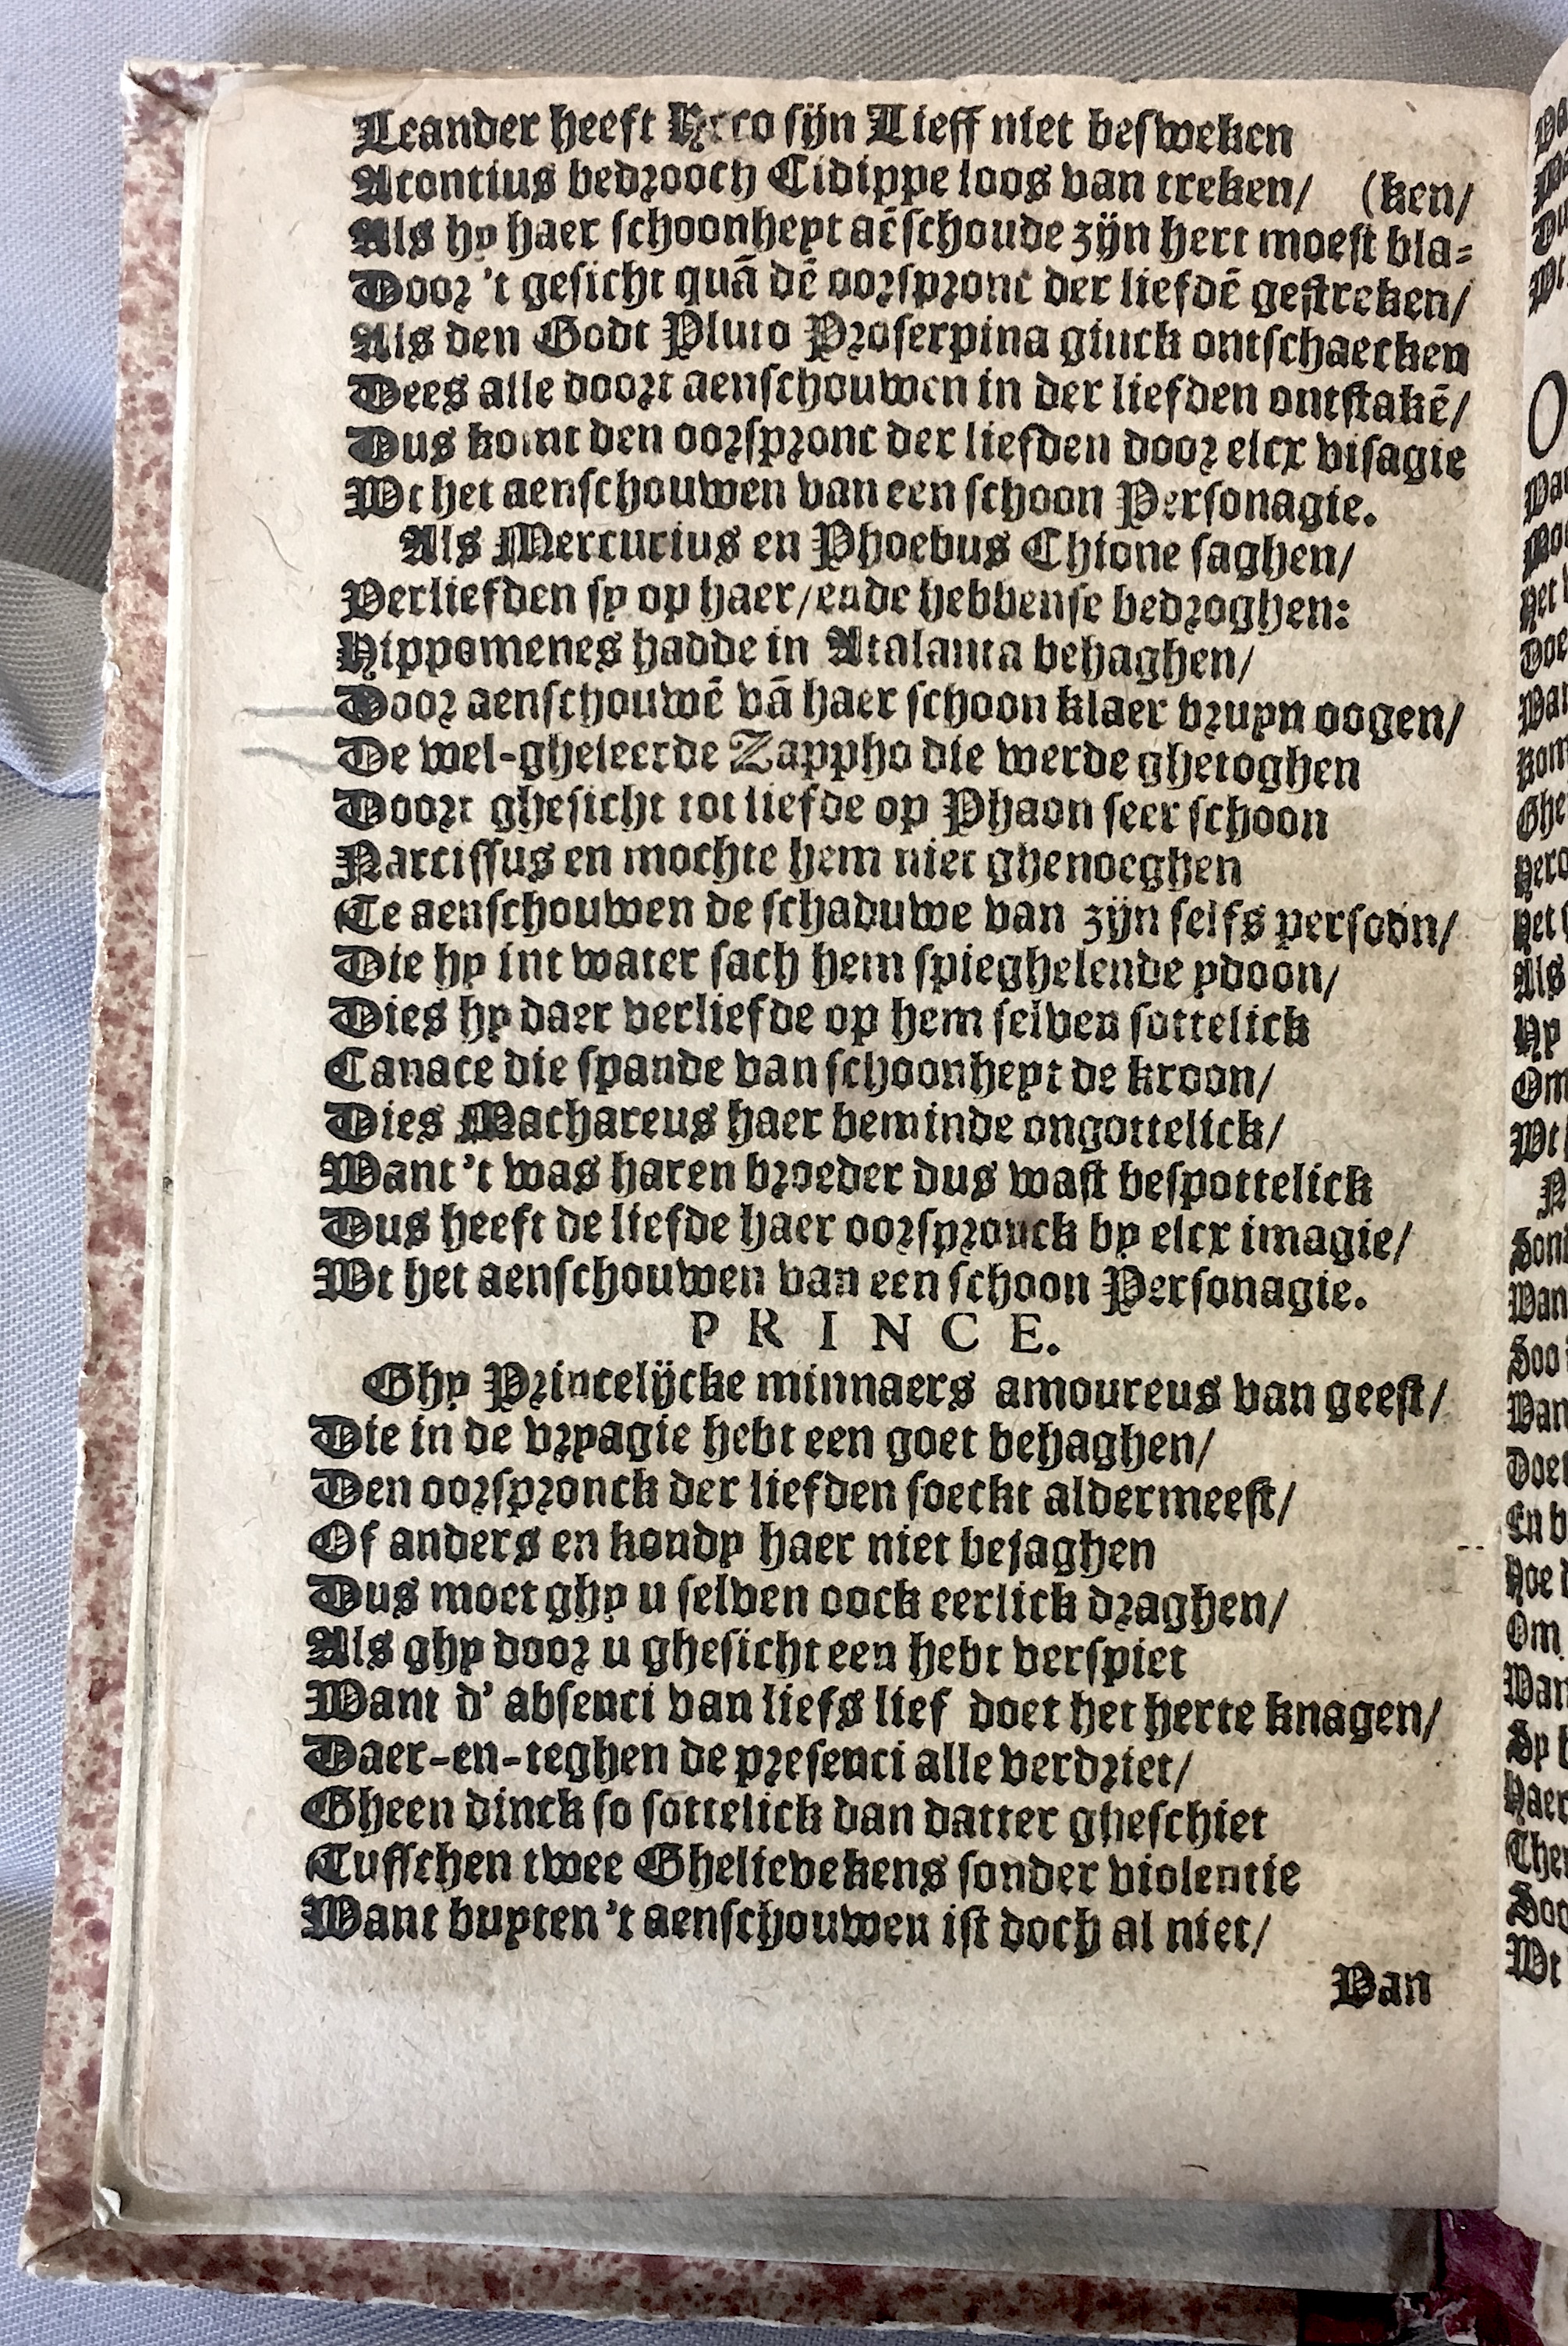 Leander heeft Hero sijn Lieff niet besweken
Acontius bedrooch Cidippe loos van treken/ (ken/
Als hy haer schoonheyt aēschoude zijn hert moest bla=
Door 't gesicht quā dē oorspronc der liefdē gestreken/
Als den Godt Pluto Proserpina ginck ontschaecken
Dees alle doort aenschouwen in der liefden ontstakē/
Dus komt den oorspronc der liefden door elcx visagie
Wt het aenschouwen van een schoon Personagie.
Als Mercurius en Phoebus Chione saghen/
Verliefden sy op haer/ende hebbense bedroghen:
Hippomenes hadde in Atalanta behaghen/
Door aenschouwē vā haer schoon klaer bruyn oogen/
De wel-gheleerde Zappho die werde ghetoghen
Doort ghesicht tot liefde op Phaon seer schoon
Narcissus en mochte hem niet ghenoeghen
Te aenschouwen de schaduwe van zijn selfs persoon/
Die hy int water sach hem spieghelende ydoon/
Dies hy daer verliefde op hem selven sottelick
Canace die spande van schoonheyt de kroon/
Dies Machareus haer beminde ongottelick/
Want 't was haren broeder dus wast bespottelick
Dus heeft de liefde haer oorspronck by elcx imagie/
Wt het aenschouwen van een schoon Personagie.
PRINCE.
Ghy Princelijcke minnaers amoureus van geest/
Die in de vryagie hebt een goet behaghen/
Den oorspronck der liefden soeckt aldermeest/
Of anders en kondy haer niet bejaghen
Dus moet ghy u selven oock eerlick draghen/
Als ghy door u ghesicht een hebt verspiet
Want d' absenci van liefs lief doet het herte knagen/
Daer-en-teghen de presenci alle verdriet/
Gheen dinck so sottelick dan datter gheschiet
Tusschen twee Ghelievekens sonder violentie
Want buyten 't aenschouwen ist doch al niet/
Van